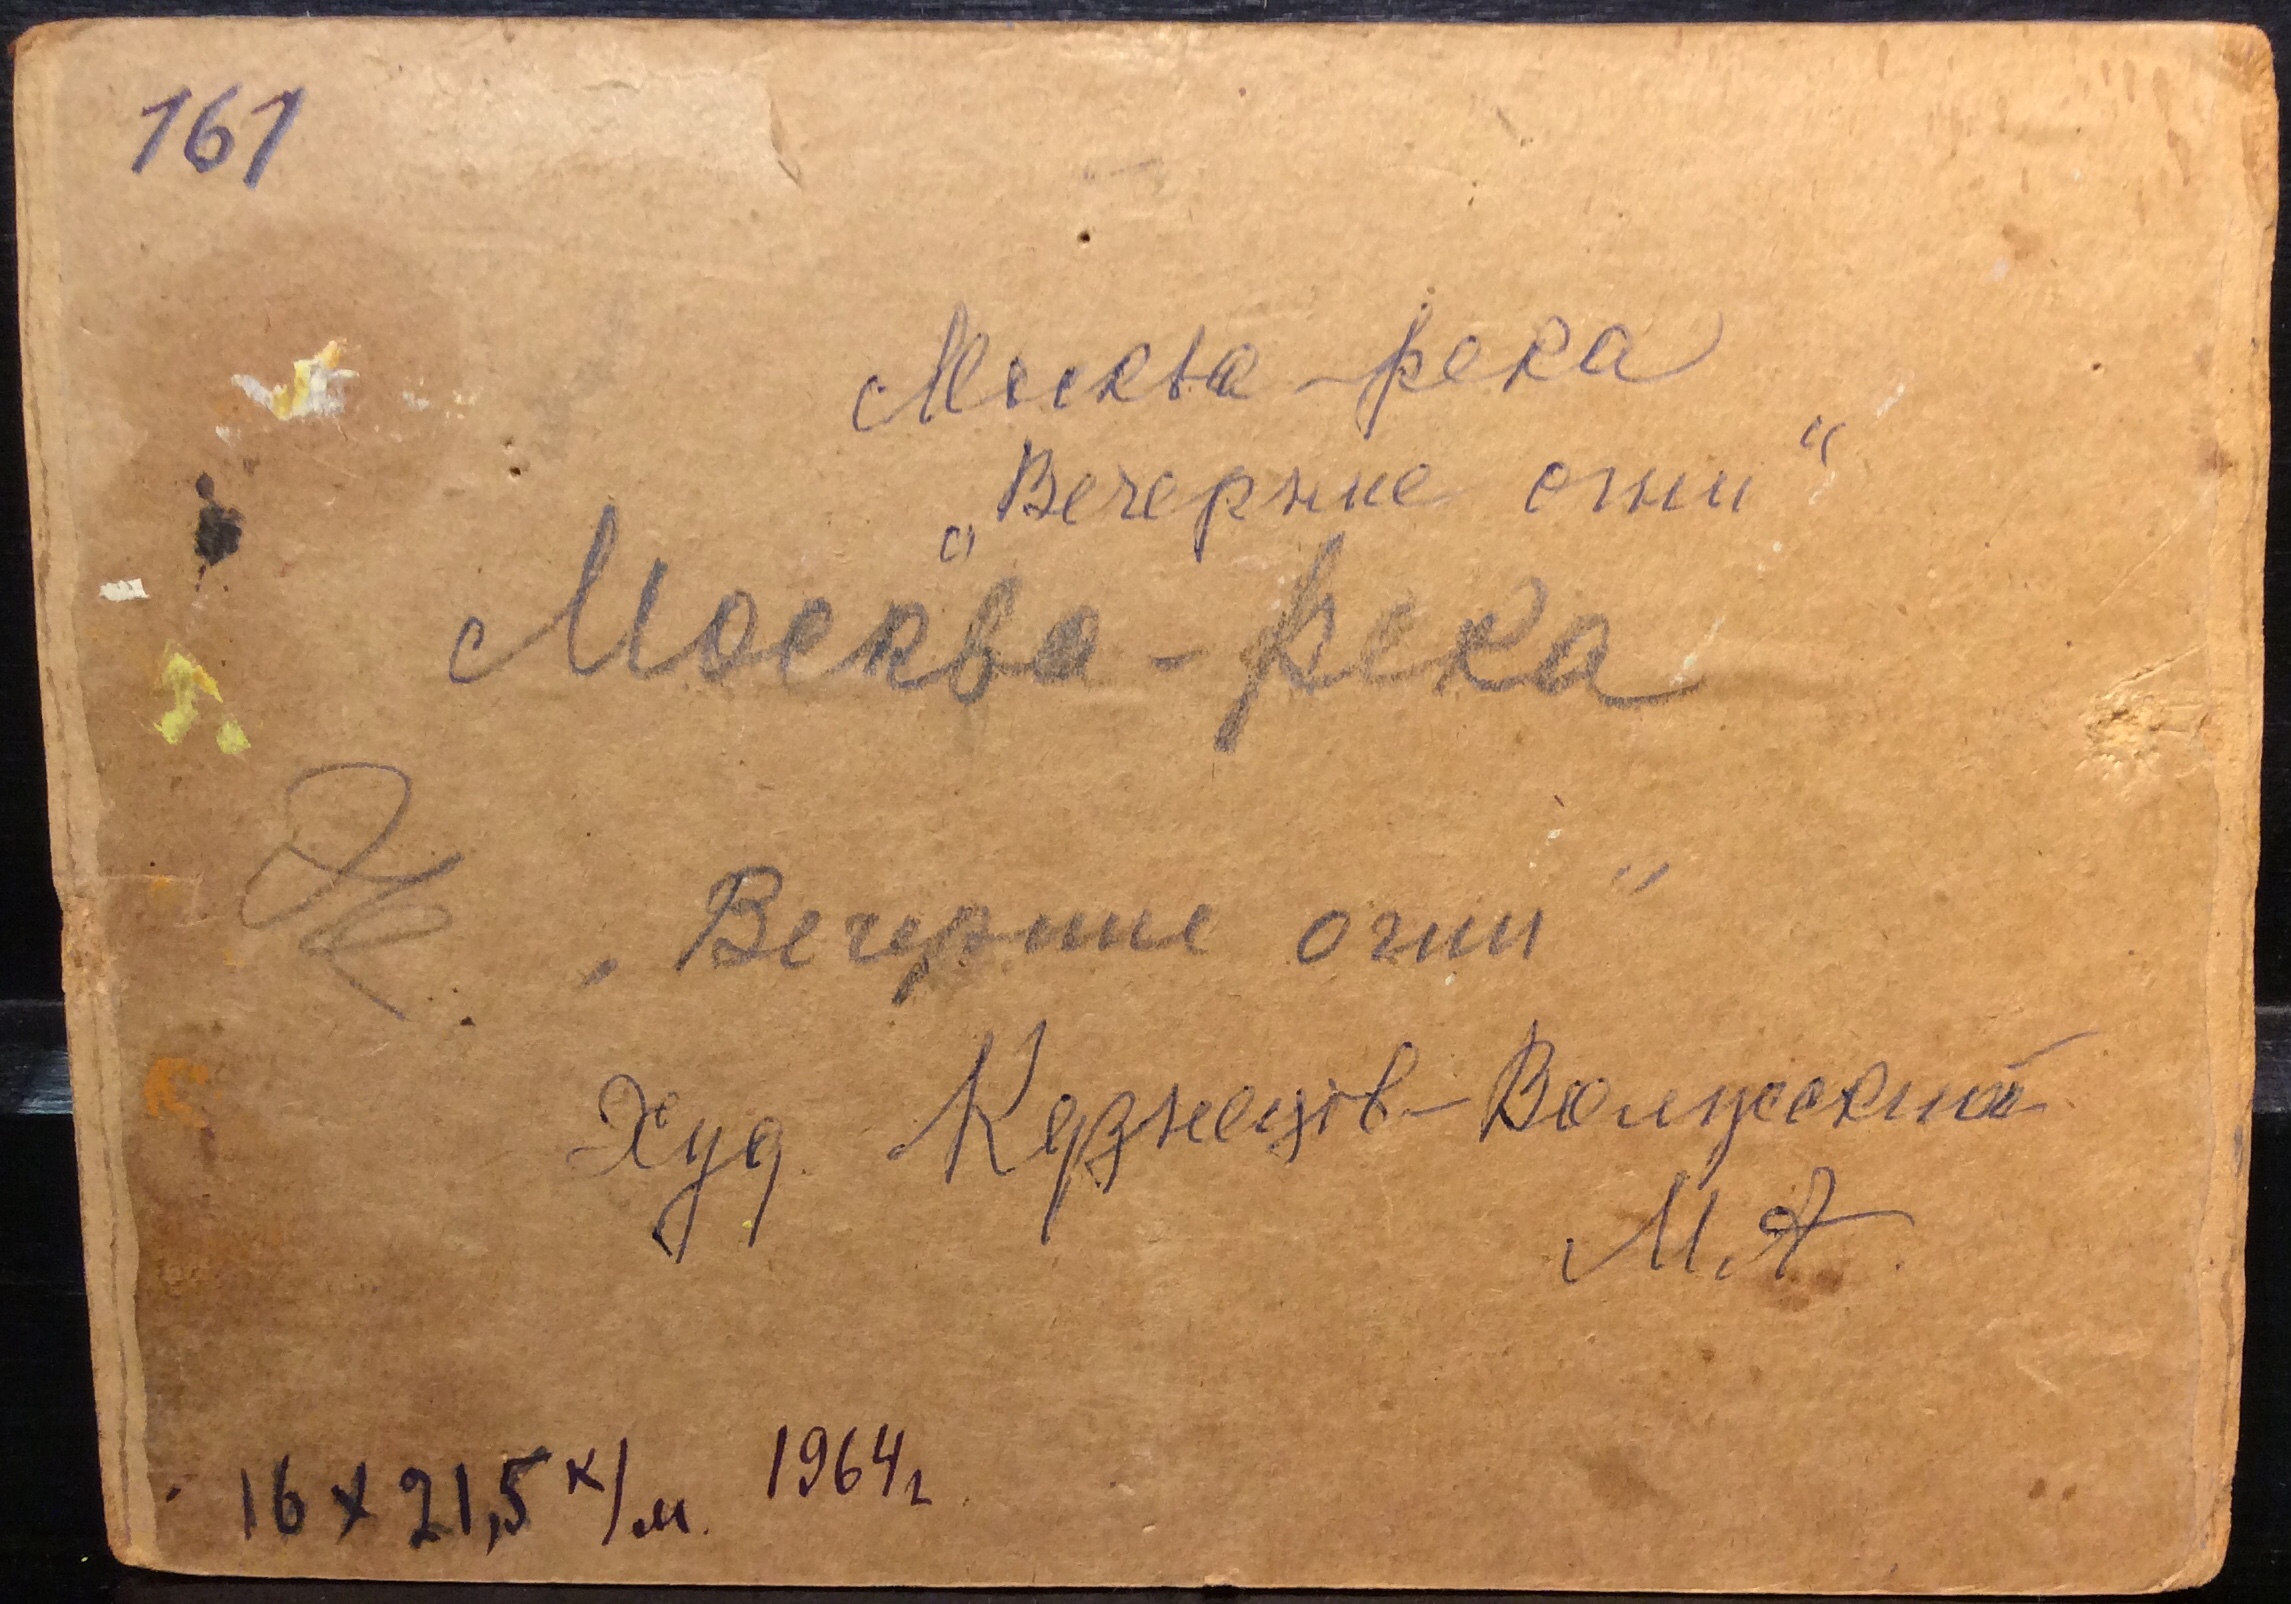 161
Москва-река
„Вечерние огни“
Москва-река
„Вечерние огни"
Худ. Кузнецов-Волжский
М.А.
16 х 21,5 к/м. 1964г.